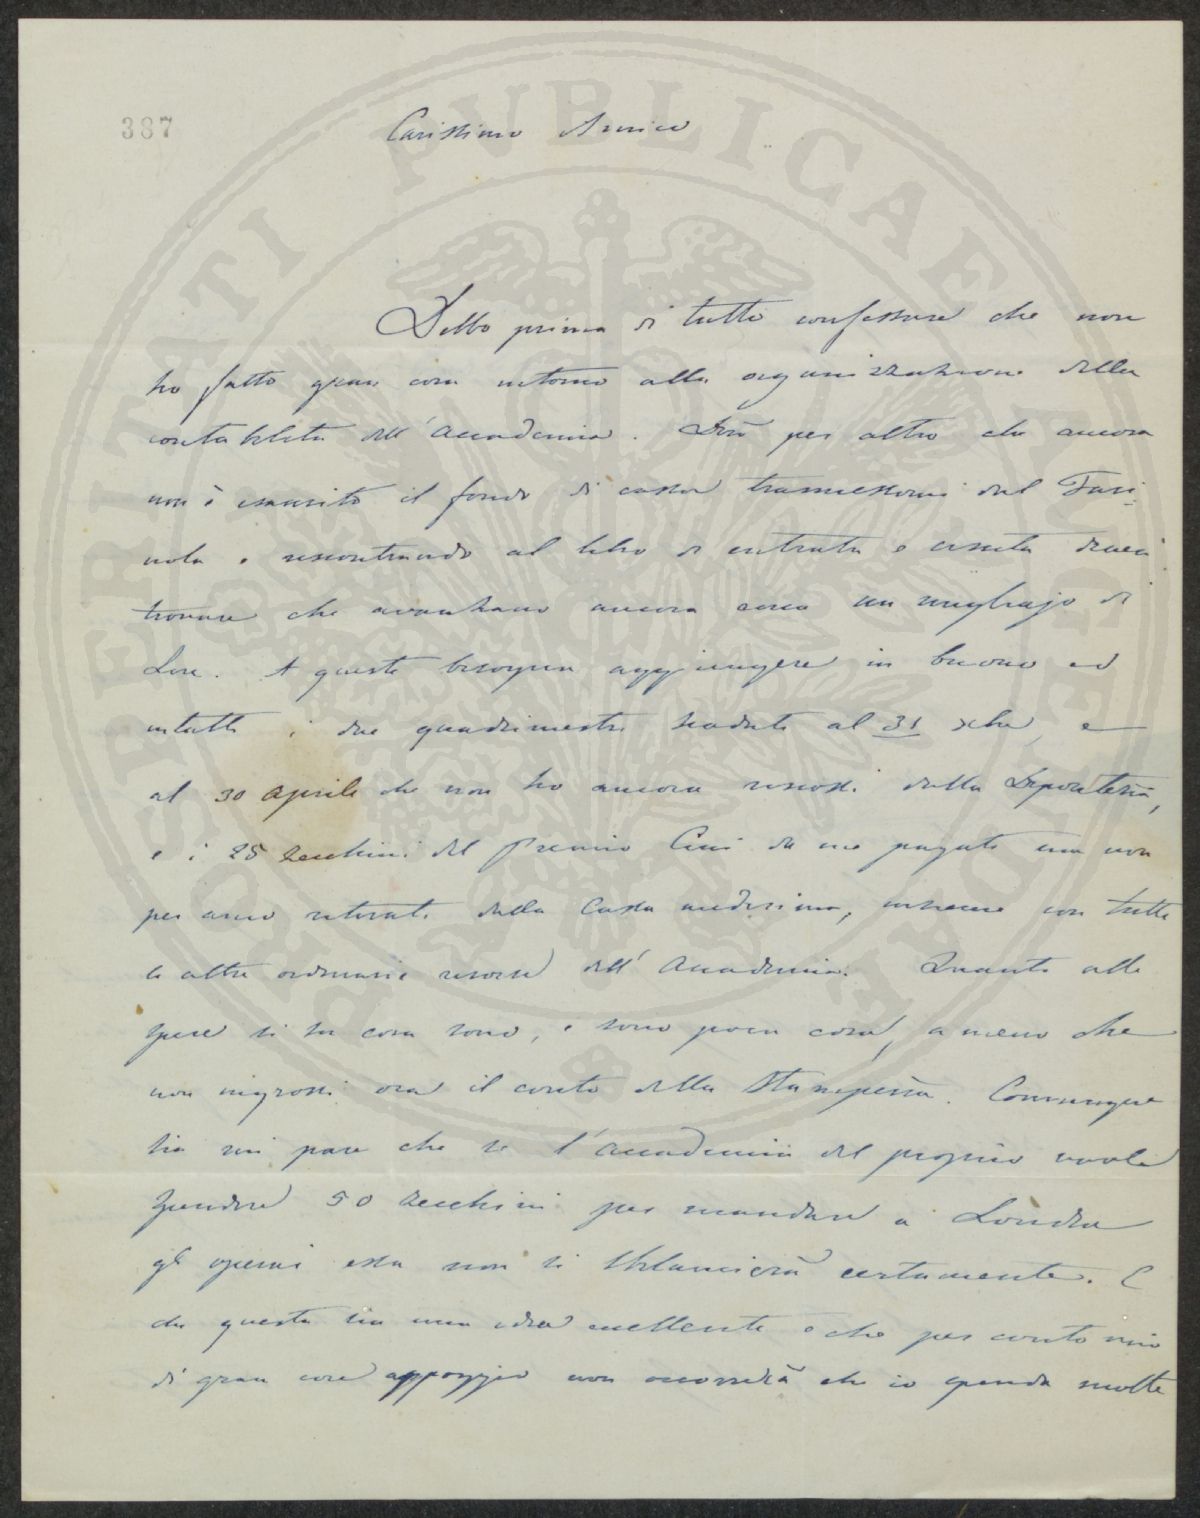 387
Carissimo Amico
Debbo prima di tutto confessare che non
ho fatto gran cosa intorno alla organizzazione della
contabilità dell'Accademia. Dirò per altro che ancora
non è esaurito il fondo di cassa trasmessomi dal Fari-
nola e riscontrando al libro di entrata e uscita
trovare che avanzano ancora circa un migliajo di
Lire. A queste bisogna aggiungere in buono ed
intatti i due quadrimestri scaduti al 31 xbre, e
al 30 Aprile che non ho ancora riscossi dalla Depositeria,
e i 25 Zecchini del Premio Cini da me pagati ma non
per anco ritirati dalla Cassa medesima, insieme con tutte
le altre ordinarie risorse dell'Accademia. Quanto alle
spese si sa cosa sono, e sono poca cosa, a meno che
non ingrossi ora il conto della Stamperia. Comunque
sia mi pare che se l'Accademia del proprio vuole
spendere 50 Zecchini per mandare a Londra
gli operai essa non si sbilancierà certamente. E
che questa sia una idea eccellente e che per conto mio
di gran core appoggio non occorrerà che io spenda molte